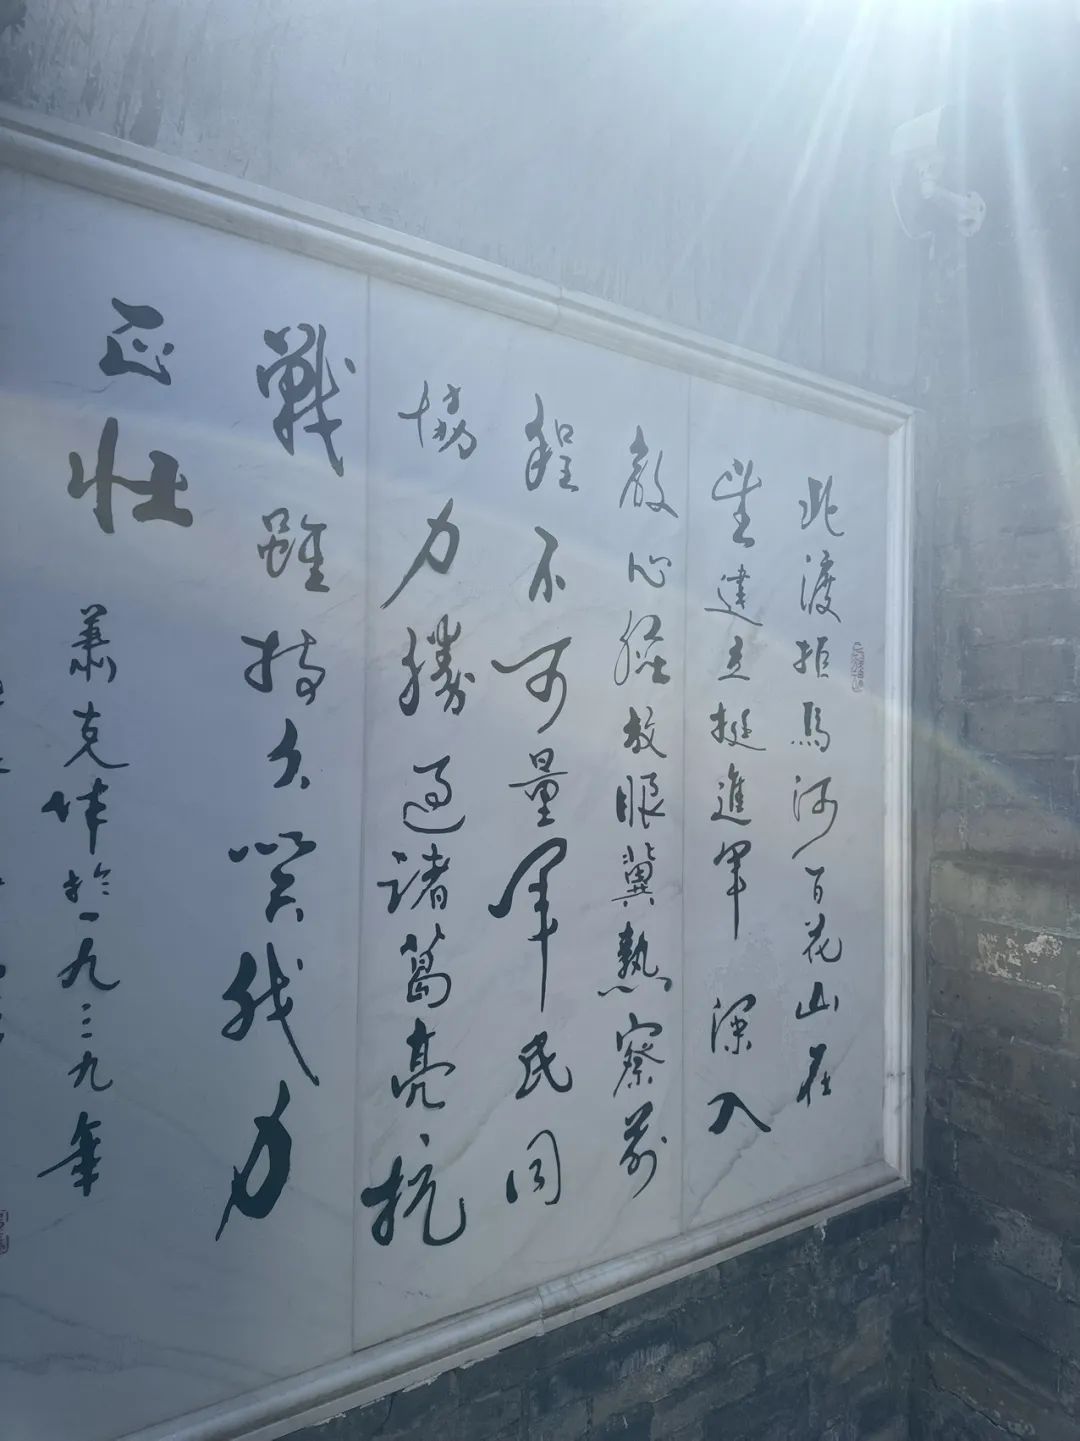 北渡拒馬河百花山在
望建立挺進軍深入
敵心臟放眼冀熱察前
程不可量軍民同
協力勝過諸葛亮抗
戰雖持久笑我力
正壯
蕭克作於一九三九年